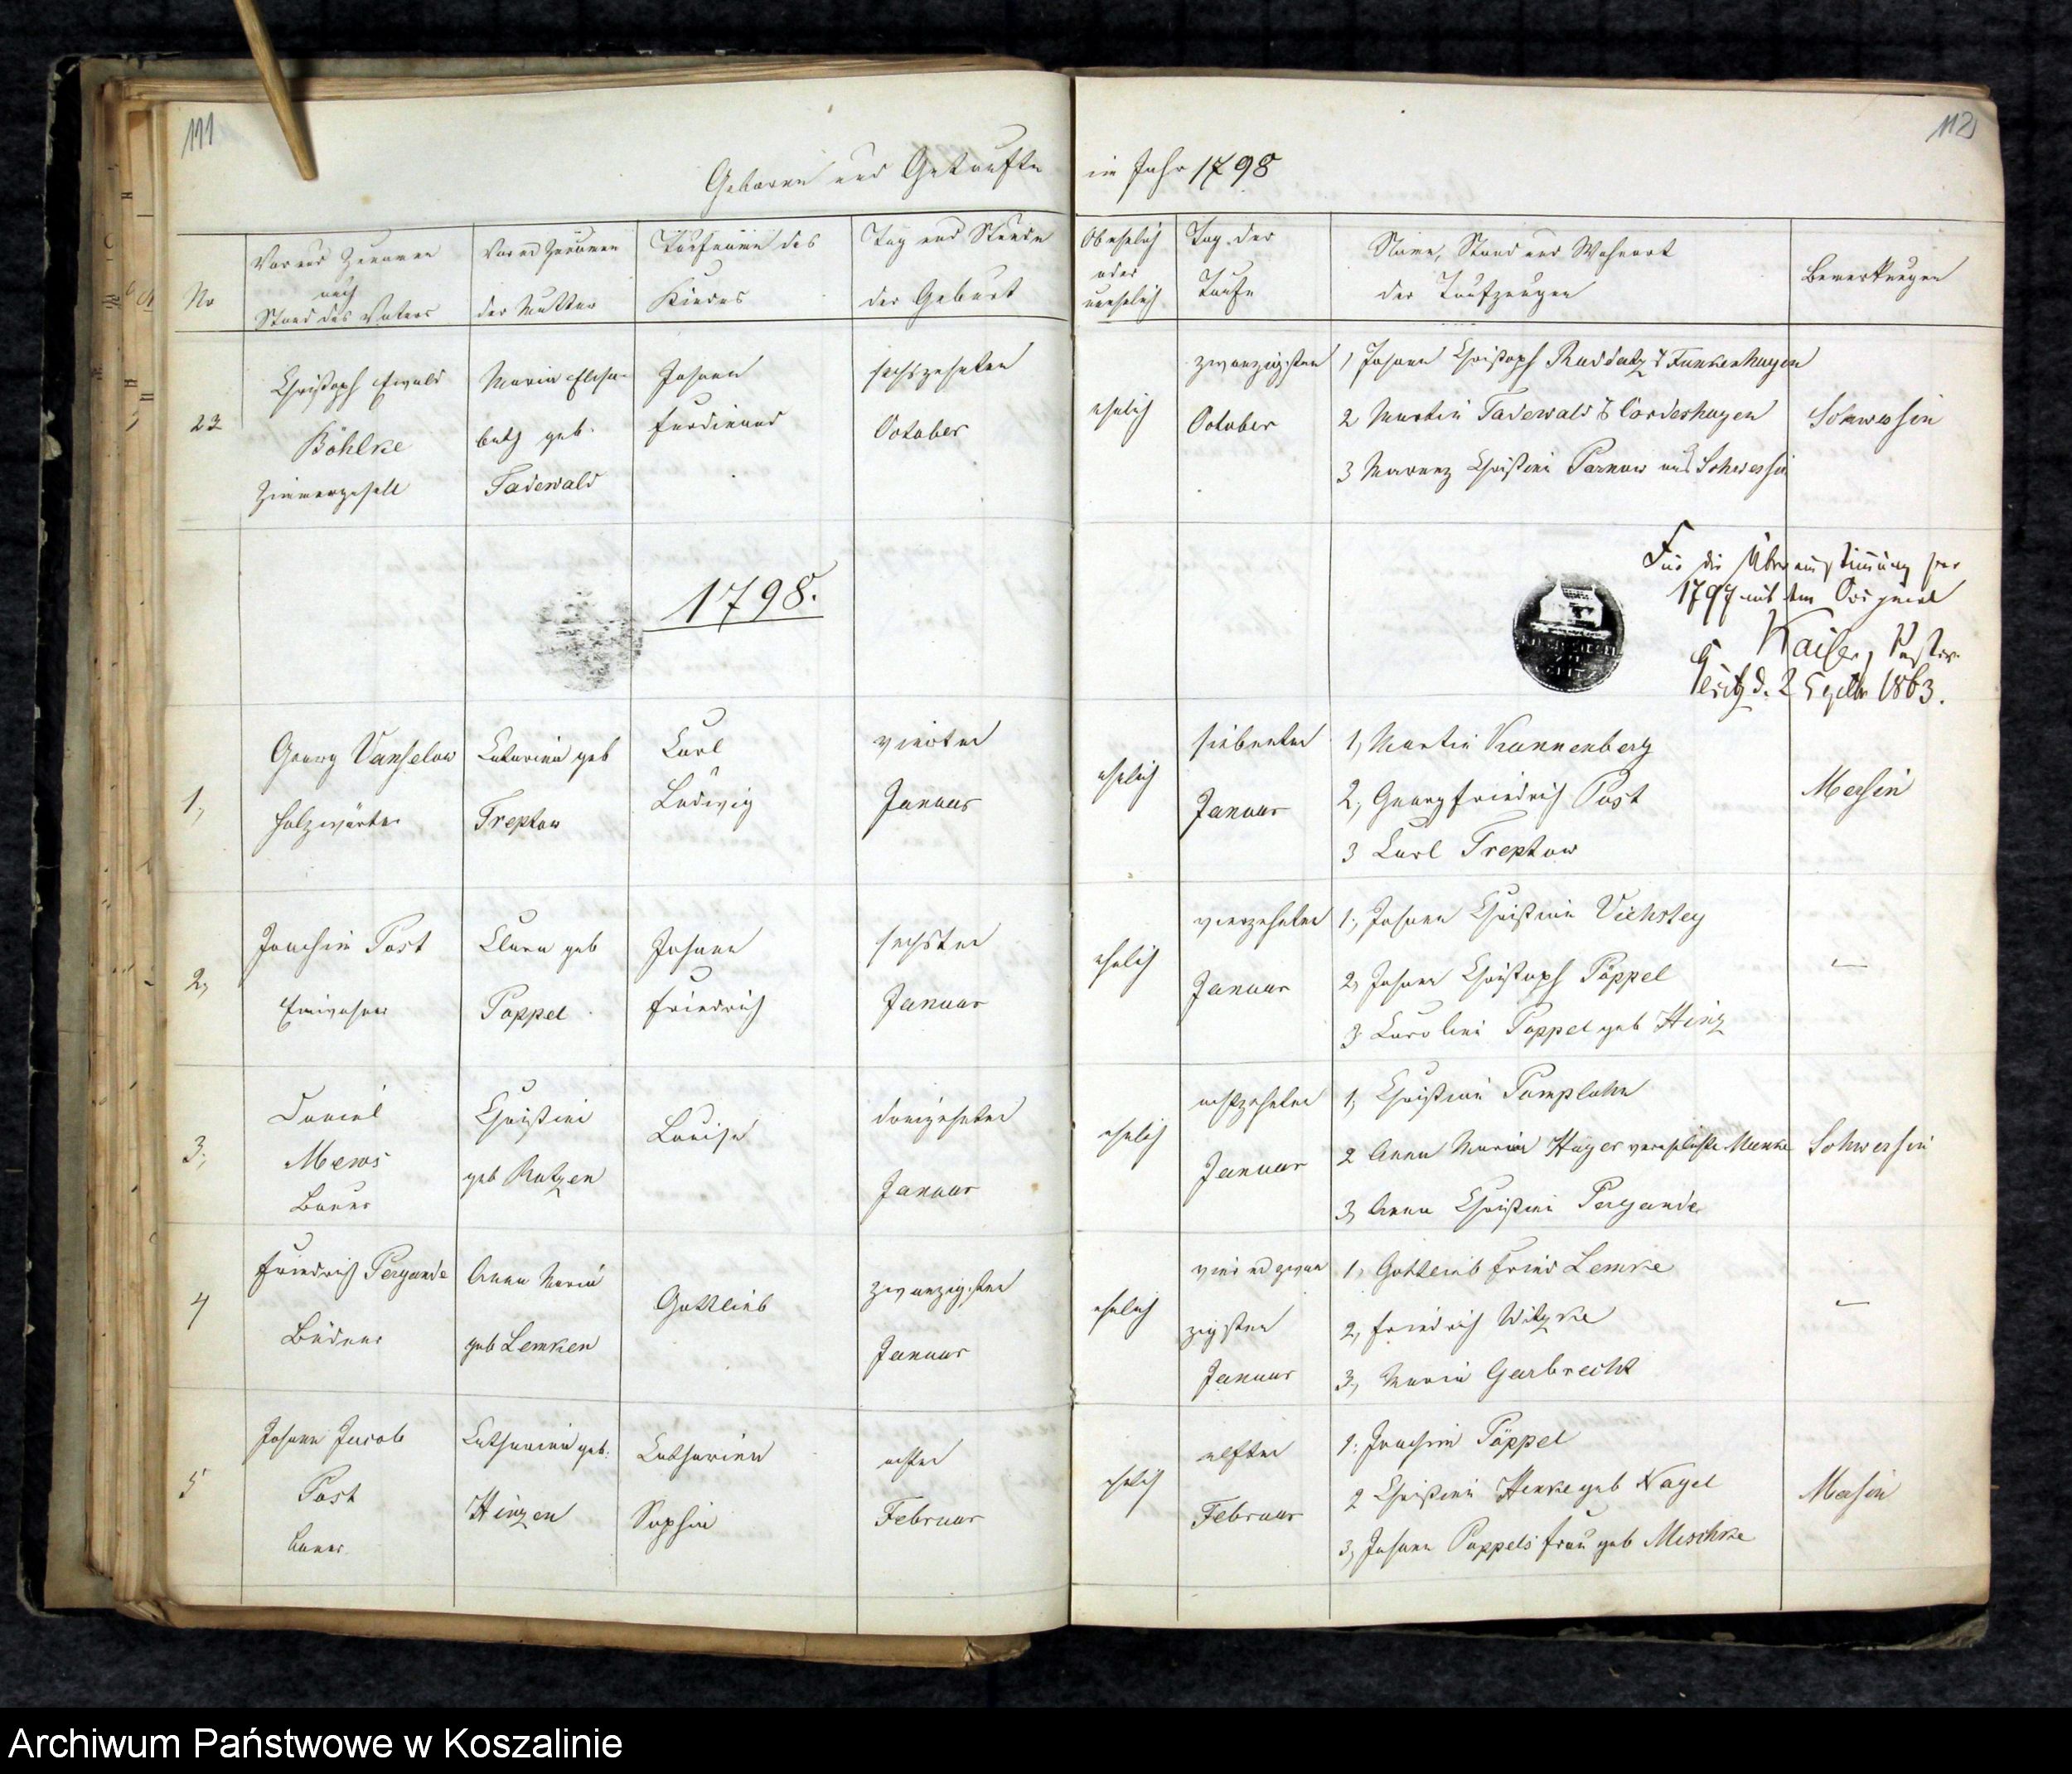 111
112
Geborne und Getaufte im Jahr 1798
No
Vor und Zunamen
nach
Stand des Vaters
Vor und Zunamen
der Mutter
Taufname des
Kindes
Tag und Stunde
der Geburt
Ob ehelich
oder
unehelich
Tag der
Taufe
Name, Stand und Wohnort
der Taufzeugen
Bemerkungen
23
Christoph Ewald
Böhlke
Zimmergesell
Maria Elisa-
beth geb.
Tadewald
Johann
Ferdinand
sechszehnten
October
ehelich
zwanzigsten
October
1 Johann Christoph Raddatz Funkenhagen
2 Martin Tadewald Cordeshagen
3 Christine Parnow aus Schwessin
Schwessin
1798.
Für die Übereinstimmung pro
1797 mit dem Original
Kaiser, Pastor
Geritz d. 2 Septbr 1863.
1,
Georg Vanselow
Holzwärter
Catarina geb
Treptow
Carl
Ludwig
vierten
Januar
ehelich
siebenten
Januar
1, Martin Kannenberg
2, Georg Friedrich Post
3 Carl Treptow
Mersin
2,
Joachim Post
Einwohner
Clara geb
Poppel
Johann
Friedrich
sechsten
Januar
ehelich
vierzehnten
Januar
1, Johann Christian
2, Johann Christoph Pöppel
3 Caroline Poppel geb Hinz
—
3,
Daniel
Mews
Bauer
Christine
geb Rutzen
Louise
dreizehnten
Januar
ehelich
achtzehnten
Januar
1, Christian Pamplohn
2 Anna Maria Hager verehelichte
3, Anna Christine Pergande
Schwessin
4
Friedrich Pergande
Büdner
Anna Maria
geb Lemken
Gottlieb
zwanzigsten
Januar
ehelich
vier und zwan
zigsten
Januar
1, Gottlieb Fried Lemke
2, Friedrich Witzke
3, Maria Garbrecht
—
5
Johann Jacob
Post
Bauer
Catharina geb.
Hinzen
Catharina
Sophia
achten
Februar
ehelich
elften
Februar
1. Joachim Pöppel
2 Christine Henke geb Nagel
3, Johann Poppels Frau geb Mischke
Mersin
Archiwum Państwowe w Koszalinie